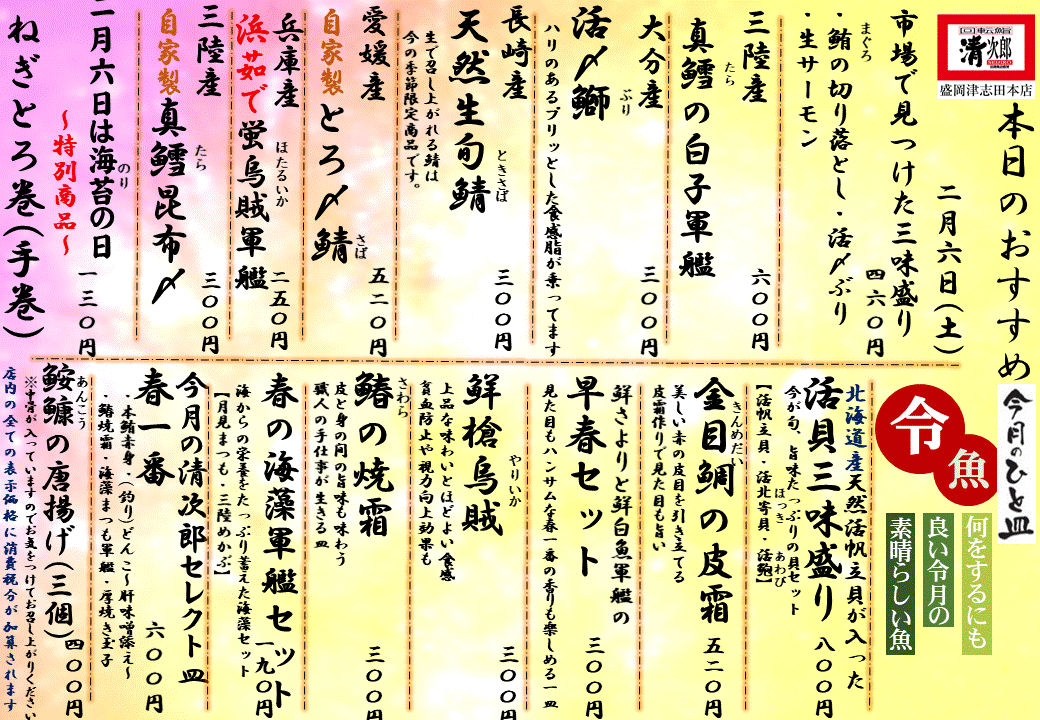 清次郎
SEIJIRO
盛岡津志田本店
本日のおすすめ
二月六日(土)
市場で見つけた三味盛り
・鮪の切り落とし・活〆ぶり
まぐろ
・生サーモン
四六〇円
三陸産
真鱈の白子軍艦
たら
六〇〇円
大分産
活〆鰤
ぶり
ハリのあるプリッとした食感脂が乗ってます
三〇〇円
長崎産
天然生旬鯖
ときさば
生で召し上がれる鯖は
今の季節限定商品です。
三〇〇円
愛媛産
自家製とろ〆鯖
さば
五二〇円
兵庫産
浜茹で蛍烏賊軍艦
ほたるいか
二五〇円
三陸産
自家製真鱈昆布〆
たら
三〇〇円
二月六日は海苔の日
のり
～特別商品～
ねぎとろ巻(手巻)
一三〇円
今月のひと皿
令魚
何をするにも
良い令月の
素晴らしい魚
北海道産天然活帆立貝が入った
活貝三味盛り
今が旬、旨味たっぷりの貝セット
【活帆立貝・活北寄貝・活鮑】
ほっき
あわび
八〇〇円
金目鯛の皮霜
きんめだい
美しい赤の皮目を引き立てる
皮霜作りで見た目も旨い
五二〇円
鮮さよりと鮮白魚軍艦の
早春セット
見た目もハンサムな春一番の香りも楽しめる一皿
三〇〇円
鮮槍烏賊
やりいか
上品な味わいとほどよい食感
貧血防止や視力向上効果も
三〇〇円
鰆の焼霜
さわら
皮と身の間の旨味も味わう
職人の手仕事が生きる皿
三〇〇円
春の海藻軍艦セット
海からの栄養をたっぷり蓄えた海藻セット
【月見まつも・三陸めかぶ】
一九〇円
今月の清次郎セレクト皿
春一番
・本鮪赤身・(釣り)どんこ～肝味噌添え～
・鰆焼霜・海藻まつも軍艦・厚焼き玉子
六〇〇円
鮟鱇の唐揚げ(三個)
あんこう
※中骨が入っていますのでお気をつけてお召し上がりください
四〇〇円
店内の全ての表示価格に消費税分が加算されます